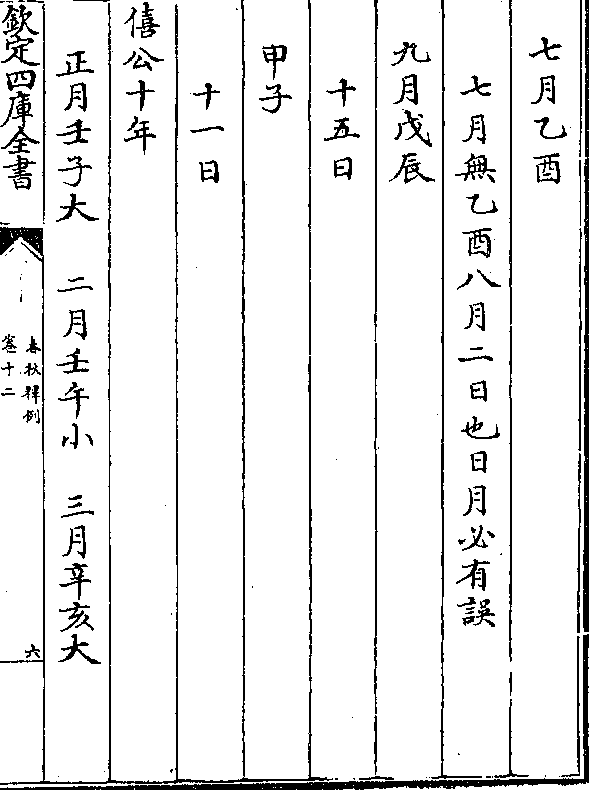 七月乙酉
七月無乙酉八月二日也日月必有誤
九月戊辰
十五日
甲子
十一日
僖公十年
正月壬子大　二月壬午小　三月辛亥大
欽定四庫全書
春秋釋例
卷十二
六